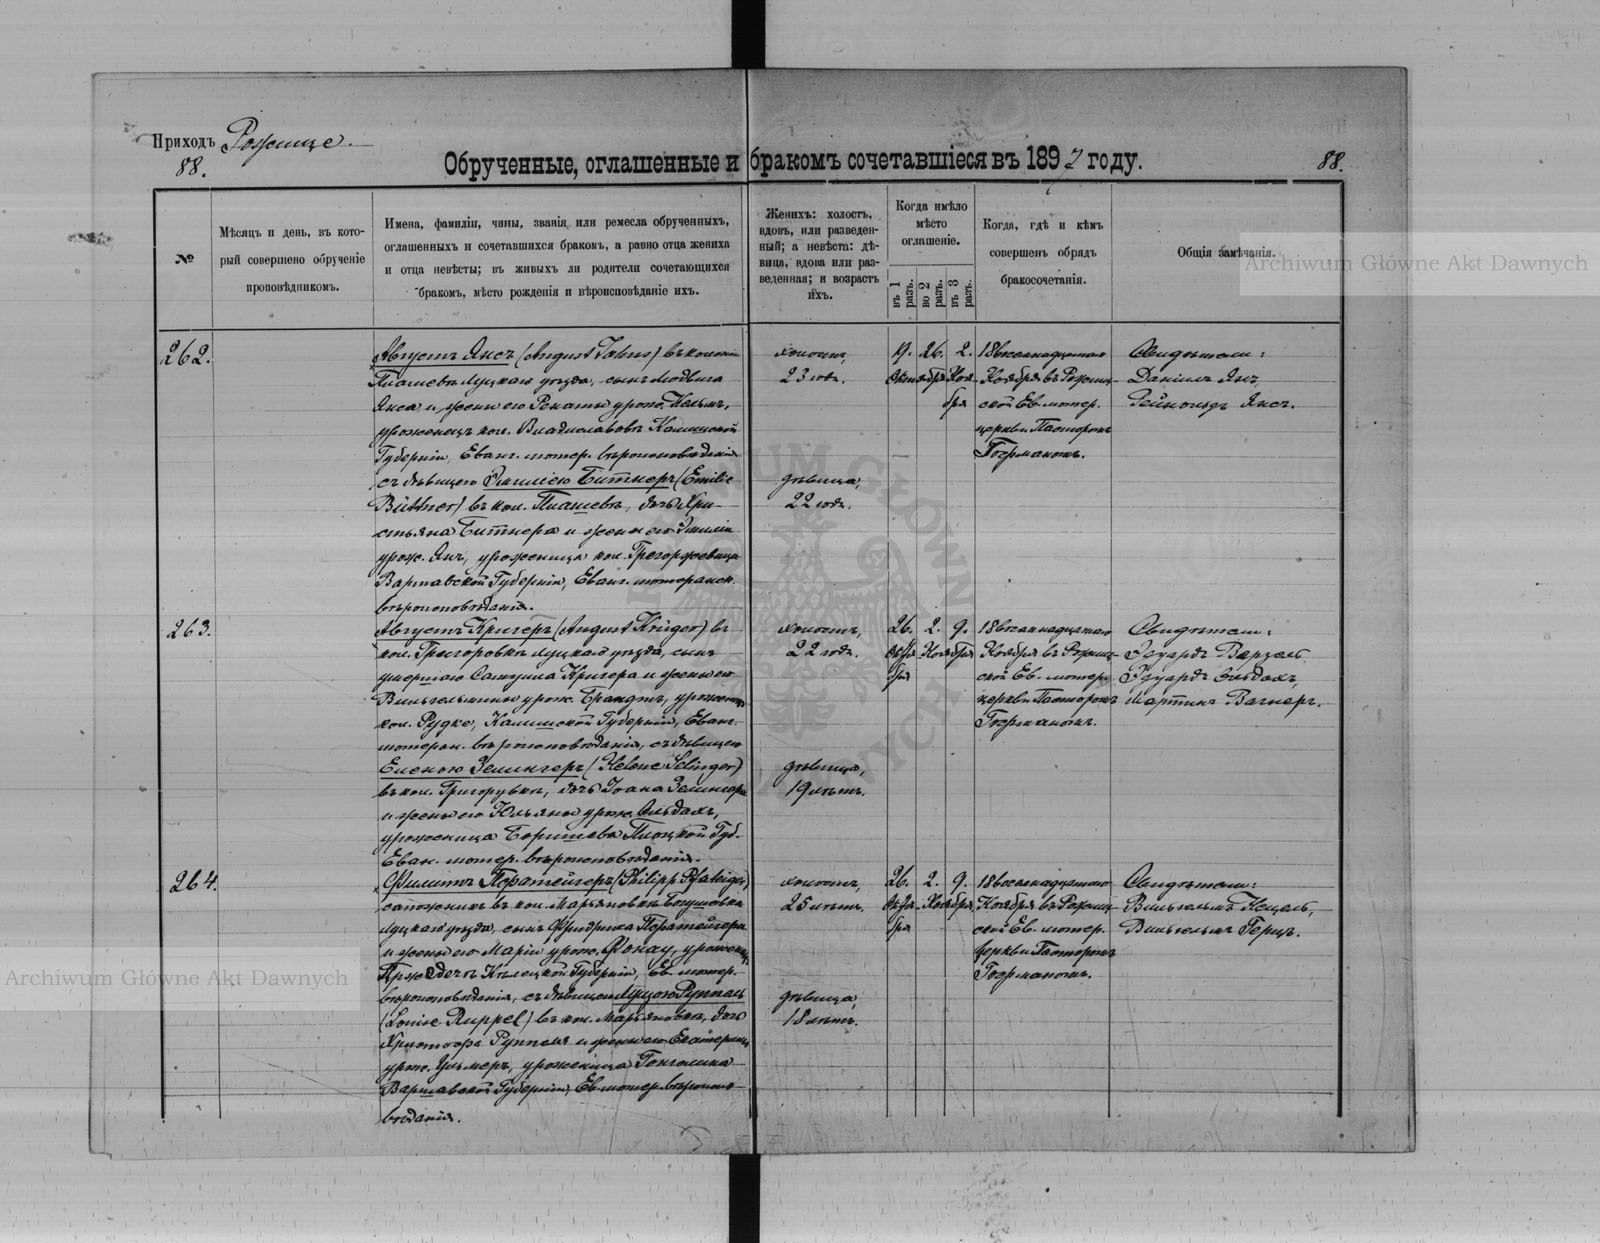 Приходъ Рожище.
88.
Обрученные, оглашенные и бракомъ сочетавшіеся въ 1897 году.
88.
№
Мѣсяцъ и день, въ кото-
рый совершено обрученіе
проповѣдникомъ.
Имена, фамиліи, чины, званія или ремесла обрученныхъ,
оглашенныхъ и сочетавшихся бракомъ, а равно отца жениха
и отца невѣсты; въ живыхъ ли родители сочетающихся
бракомъ, мѣсто рожденія и вѣроисповѣданіе ихъ.
Женихъ: холостъ,
вдовъ, или разведен-
ный; а невѣста: дѣ-
вица, вдова или раз-
веденная; и возрастъ
ихъ.
Когда имѣло
мѣсто
оглашеніе.
въ 1 разъ.
во 2 разъ.
въ 3 разъ.
Когда, гдѣ и кѣмъ
совершенъ обрядъ
бракосочетанія.
Общія замѣчанія.
Archiwum Główne Akt Dawnych
262.
Августъ Янсъ (August Jahns) въ колоніи
Пляшевъ Луцкаго уѣзда, сынъ Людвига
Янса и жены его Ренаты урож. Кельмъ,
уроженецъ кол. Владиславовъ Калишской
Губерніи, Еванг. лютер. вѣроисповѣданія
съ дѣвицею Эмиліею Битнеръ (Emilie
Büttner) въ кол. Пляшевъ, дочь Хри-
стьяна Битнера и жены его Эмиліи
урож. Янъ, уроженица кол. Грегоржевица
Варшавской Губерніи, Еванг. лютеранск.
вѣроисповѣданія.
холостъ,
23 годъ.
дѣвица,
22 годъ.
19. 26. 2.
Октября Ноя-
бря
18 восемнадцатаго
Ноября въ Рожищ-
ской Ев. лютер.
церкви Пасторомъ
Гоэрманомъ.
Свидѣтели:
Даніилъ Янъ,
Рейнольдъ Янсъ.
263.
Августъ Кригеръ (August Krüger) въ
кол. Григоровкѣ Луцкаго уѣзда, сынъ
умершаго Самуила Кригера и жены его
Вильгельмины урож. Брандтъ, уроженецъ
кол. Рудке, Калишской Губерніи, Еванг.
лютеран. вѣроисповѣданія, съ дѣвицею
Еленою Зелингеръ (Helene Selinger)
въ кол. Григорувкѣ, дочь Іоана Зелингера
и жены его Юльяны урож. Ольдахъ,
уроженица Боришева Плоцкой Губ.
Еван. лютер. вѣроисповѣданія.
холостъ,
22 годъ.
дѣвица,
19 лѣтъ.
26. 2. 9.
Октя- Ноября
бря
18 восемнадцатаго
Ноября въ Рожищ-
ской Ев. лютер.
церкви Пасторомъ
Гоэрманомъ.
Свидѣтели:
Эдуардъ
Эдуардъ Ольдахъ,
Мартинъ Вагнеръ.
264.
Филиппъ Пфатейгеръ (Philipp Pfateiger)
сапожникъ въ кол. Марьяновкѣ Богушовка
Луцкаго уѣзда, сынъ Фридриха Пфатейгера
и жены его Маріи урож. Фонау, уроженецъ
Кѣлецкой Губерніи, Ев. лютер.
вѣроисповѣданія, съ дѣвицею Луизою Руппель
(Louise Ruppel) въ кол. Марьяновкѣ, дочь
Христофа Руппеля и жены его Екатерины
урож. Ульмеръ, уроженица Гонголина
Варшавской Губерніи, Ев. лютер. вѣроиспо-
вѣданія.
холостъ,
25 лѣтъ.
дѣвица,
18 лѣтъ.
26. 2. 9.
Октя- Ноября
бря
18 восемнадцатаго
Ноября въ Рожищ-
ской Ев. лютер.
церкви Пасторомъ
Гоэрманомъ.
Свидѣтели:
Вильгельмъ Кецель,
Вильгельмъ Герцъ.
Archiwum Główne Akt Dawnych